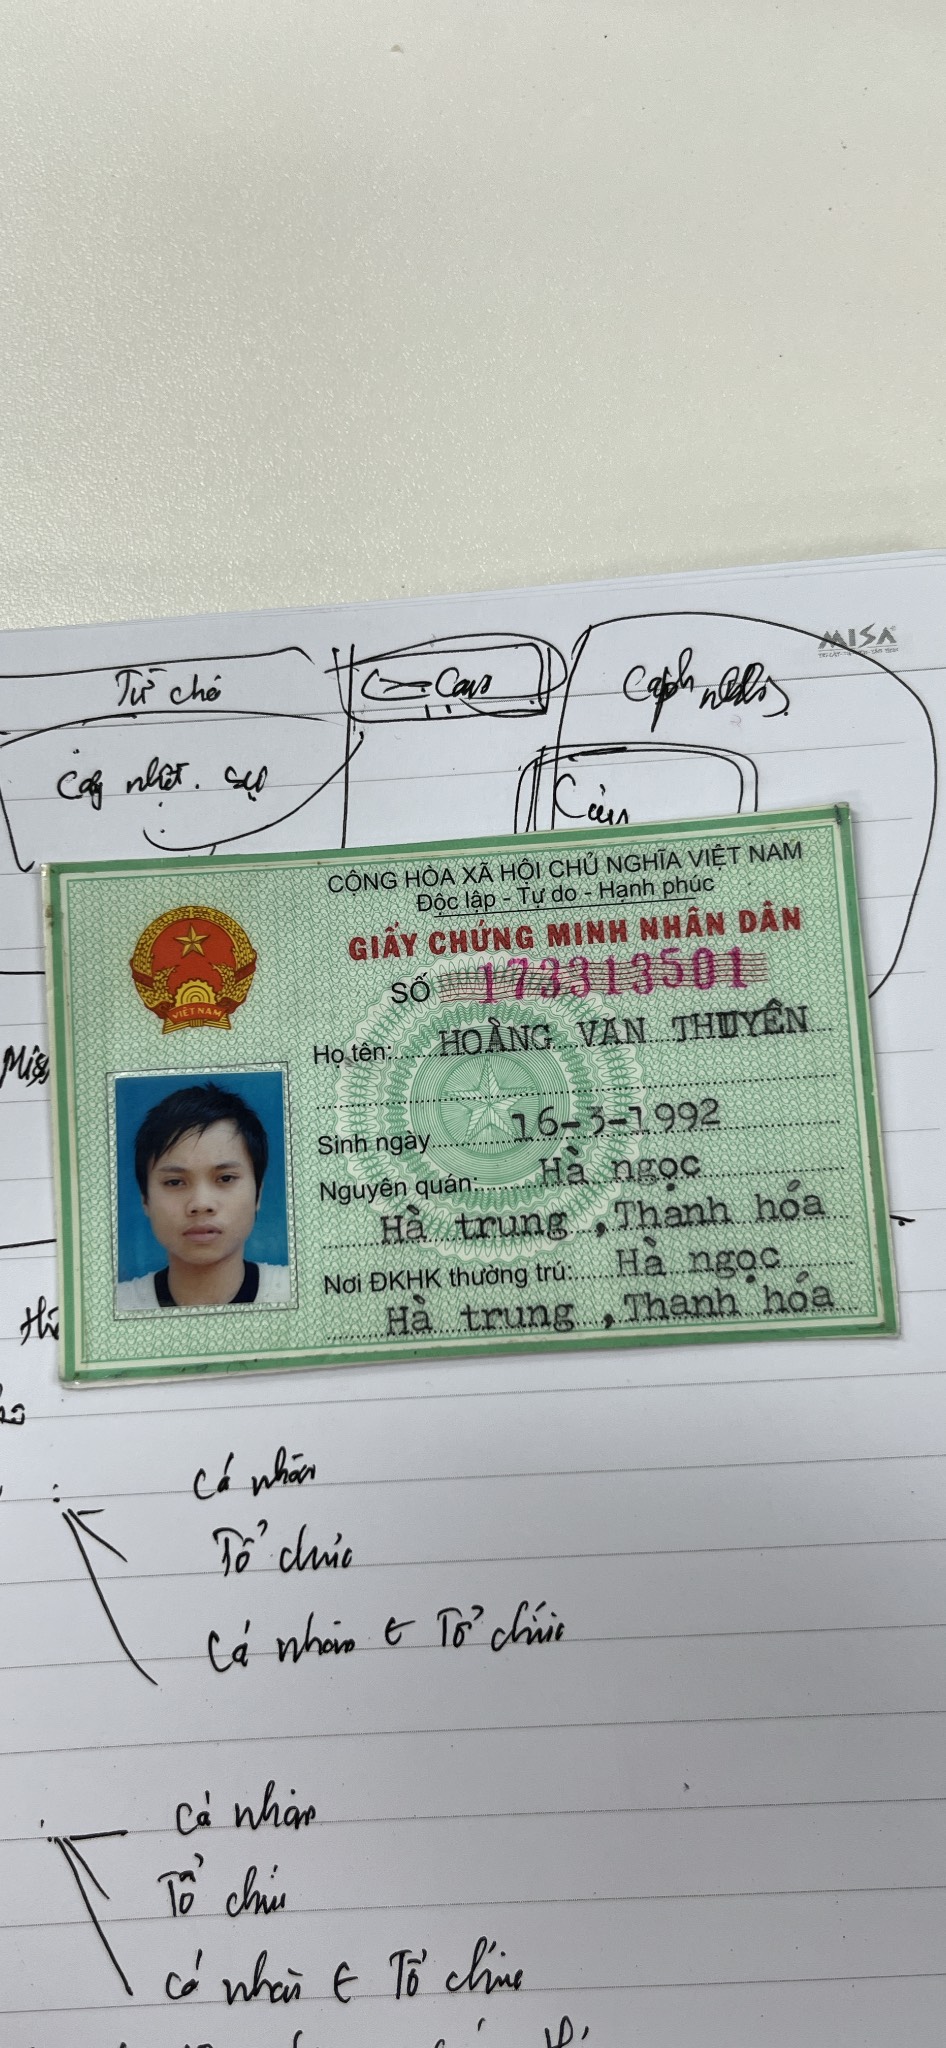 MISA
Từ chó
Cá nhân
CỘNG HÒA XÃ HỘI CHỦ NGHĨA VIỆT NAM
Độc lập - Tự do - Hạnh phúc
GIẤY CHỨNG MINH NHÂN DÂN
SỐ 173313501
VIỆT NAM
Họ tên: HOÀNG VAN THUYÊN
Sinh ngày 16-3-1992
Nguyên quán: Hà ngọc
Hà trung, Thanh hóa
Nơi ĐKHK thường trú: Hà ngọc
Hà trung, Thanh hóa
Cá nhân
Tổ chức
Cá nhân € Tổ chức
Cá nhân
Tổ chức
Cá nhân € Tổ chức